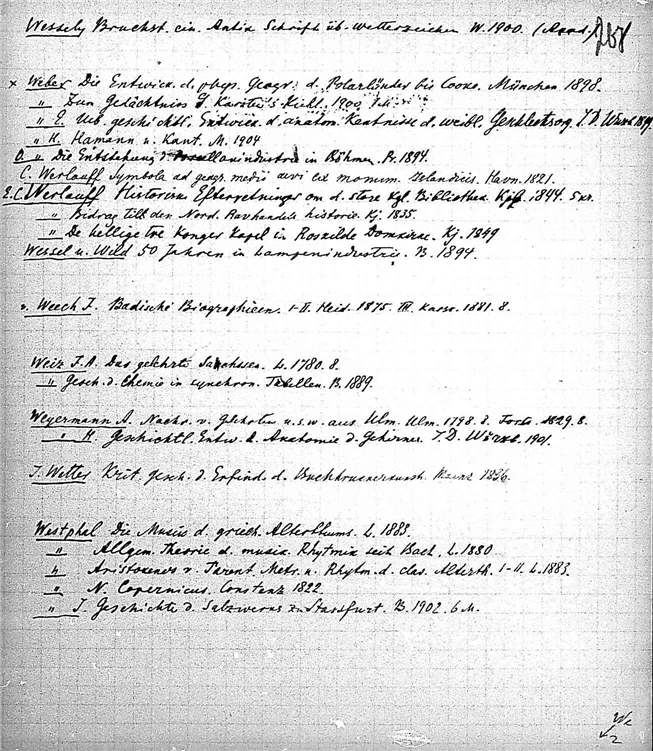 Wessely Bruchst. ein. Antik Schrift üb. Wetterzeichen W. 1900. (Acad.) 268
x Weber Die Entwick. d. phys. Geogr. d. Polarländer bis Cooks. München 1898.
" Zum Gedächtniss G. Karsten's Kiel. 1900
" E. Unt. geschichtl. Entwick. d. anatom. Kentnisse d. weibl. I. D. Würzb 1899.
" H. Hamann u. Kant. M. 1904
O. " Die Entstehung d. Porzellanindustrie in Böhmen. Pr. 1894.
C. Werlauff Symbola ad geogr. medii ævi ex monum. Islandicis. Havn. 1821.
E.C. Werlauff Historiske Efterretninger om d. store kgl. Bibliothek. Kjø. 1844. 5 kr.
" Bidrag till den Nord. Ravhandels historie. Kj. 1835.
" De hellige tre Konger Kapel in Roskilde Domkirke. Kj. 1849
Wessel u. Wild 50 Jahren in Lampenindustrie. B. 1894.
v. Weech F. Badische Biographieen. I-II. Heid. 1875. III. Karsr. 1881. 8.
Weiz F.A. Das gelehrte Sachssen. L. 1780. 8.
" Gesch. d. Chemie in synchron. Tabellen. B. 1889.
Weyermann A. Nachr. v. Gelehrten u.s.w. aus Ulm. Ulm. 1798. 8. Forts. 1829. 8.
" H. Geschichtl. Entw. d. Anatomie d. Gehirnes. I. D. Würzb. 1901.
J. Wetter Krit. Gesch. d. Erfind. d. Buchdruckerkunst. Mainz 1836.
Westphal Die Musik d. griech. Alterthums. L. 1883.
" Allgem. Theorie d. musik. Rhytmik seit Bach. L. 1880
" Aristoxenos v. Tarent Metr. u. Rhytm. d. clas. Alterth. I-II. L. 1883.
" N. Copernicus. Constanz 1822.
" J. Geschichte d. Salzwerks zu Stassfurt. B. 1902. 6 M.
We
2